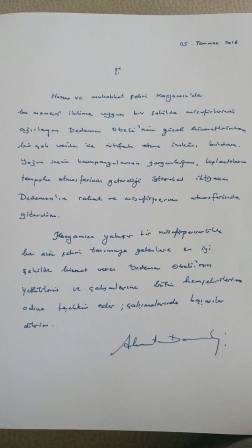 05. Temmuz 2016
Huzur ve muhabbet şehri Konya'mızda
bu manevi iklime uygun bir şekilde misafirlerini
ağırlayan Dedeman Oteli'nin güzel hizmetlerinden
bir çok vesile ile istifade etme imkânı buldum.
Yoğun seçim kampanyalarının yorgunluğunu, toplantıların
tempolu atmosferinin getirdiği istirahat ihtiyacını
Dedeman'ın rahat ve misafirperver atmosferinde
giderdim.
Konyamıza yakışır bir misafirperverlikle
bu aziz şehri tanımaya gelenlere en iyi
şekilde hizmet veren Dedeman Oteli'nin
yetkililerini ve çalışanlarını bütün hemşehrilerim
adına tebrik eder, çalışmalarında başarılar
dilerim.